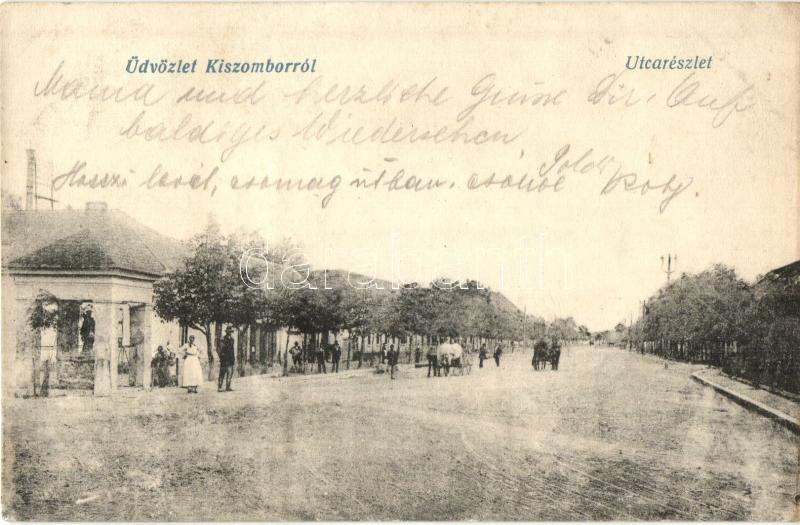 Üdvözlet Kiszomborról
Utcarészlet
Mama und herzliche Grüsse Dir. Auf
baldiges Wiedersehen
Hosszú levél, csomag útban. csókol
Poldi
darabanth